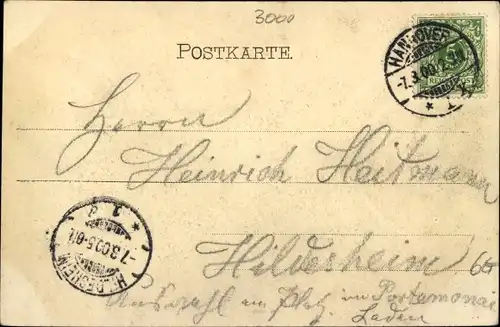 3000
POSTKARTE.
HANNOVER
-7.3.00.
Herrn
Heinrich Heitmann
HILDESHEIM
-7.3.00.5-6N.
Hildesheim
Auswahl am Platz im Portemonai
Laden